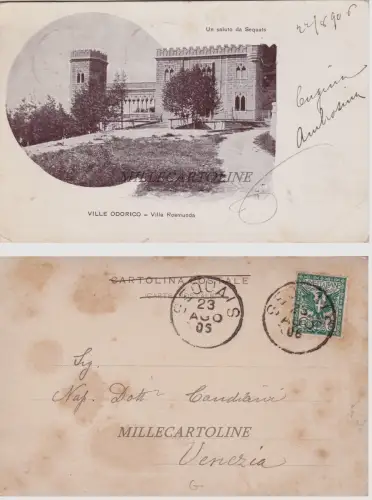 Un saluto da Sequals
22/8 906
Eugenia
Ambrosini
MILLECARTOLINE
VILLE ODORICO – Villa Rosmunda
CARTOLINA POSTALE
SEQUALS
23
AGO
06
SEQUALS
23
AGO
06
Sig.
Nap. Dott.
MILLECARTOLINE
Venezia